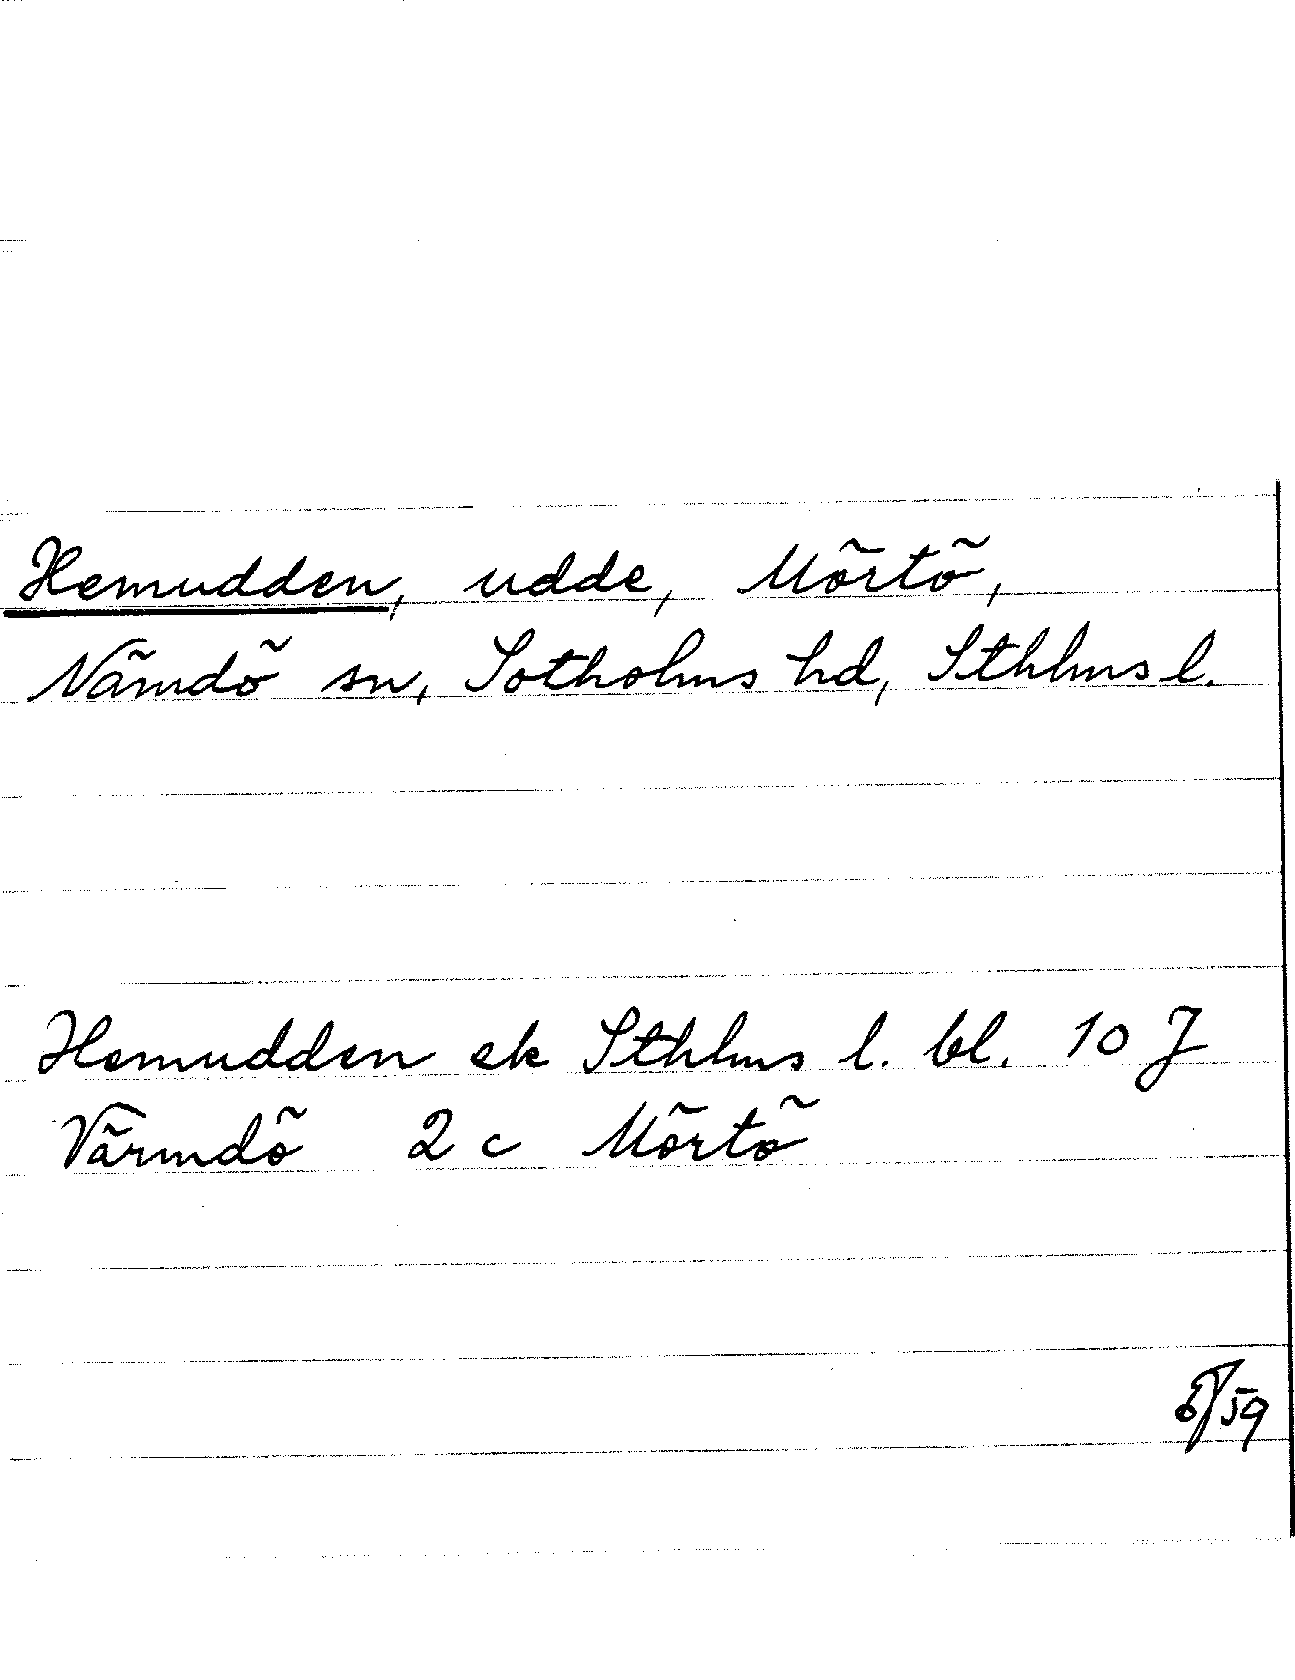 Hemudden, udde, Mörtö,
Nämdö sn, Sotholms hd, Sthlms l.
Hemudden ek Sthlms l. bl. 10 J
Värmdö 2 c Mörtö
59